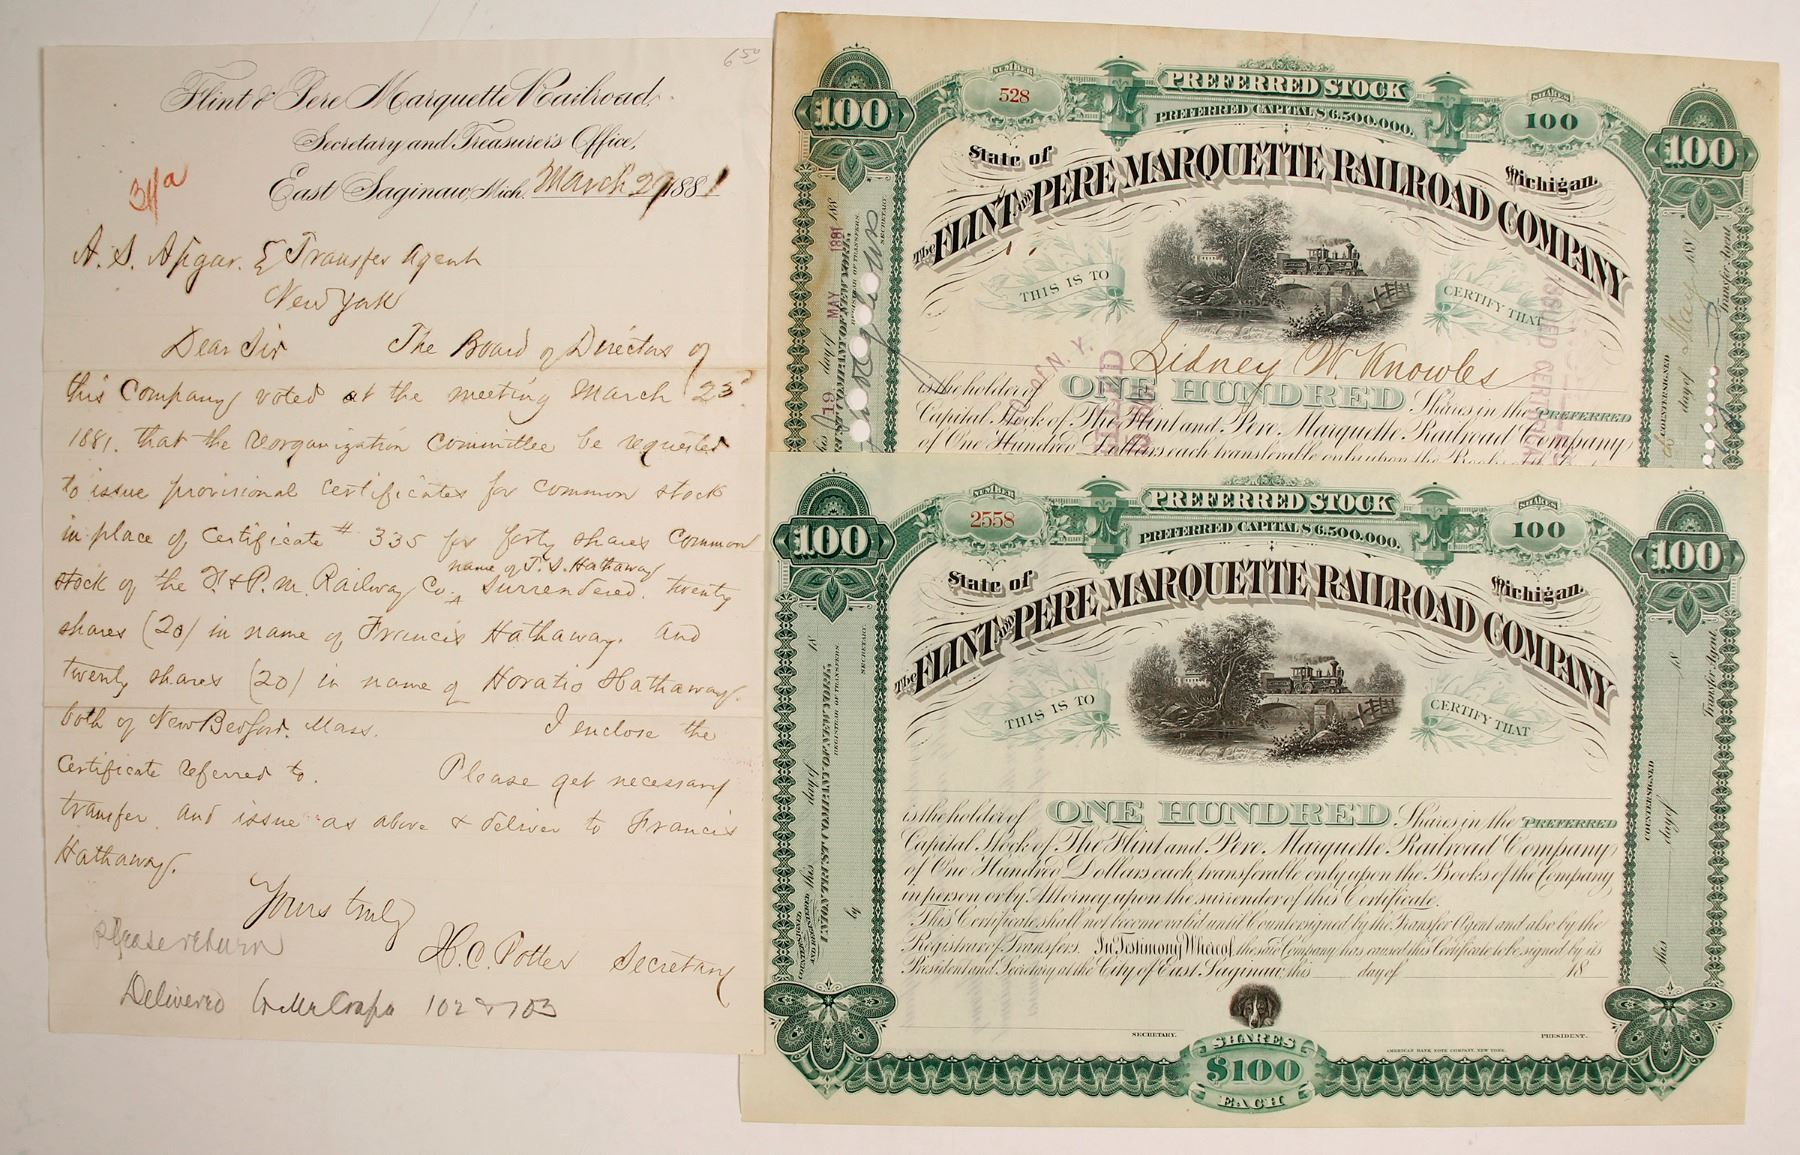 650
Flint & Pere Marquette Railroad,
Secretary and Treasurer's Office,
East Saginaw, Mich. March 29 1881
A. S. Apgar. Transfer Agent
New York
Dear Sir The Board of Directors of
this Company voted at the meeting March 23d
1881. that the reorganization Committee be requested
to issue provisional Certificates for Common stock
in place of Certificate # 335 for forty shares Common
name of T. S. Hathaway
stock of the F. & P. M. Railway Co. surrendered. twenty
shares (20) in name of Francis Hathaway. and
twenty shares (20) in name of Horatio Hathaway.
both of New Bedford. Mass. I enclose the
Certificate referred to. Please get necessary
transfer and issue as above & deliver to Francis
Hathaway.
Yours truly
H. C. Potter Secretary
please return
Delivered to Mr Crapo 102 & 103
PREFERRED STOCK
NUMBER
528
PREFERRED CAPITAL $6,500,000.
SHARES
100
100
100
State of Michigan.
The FLINT AND PERE MARQUETTE RAILROAD COMPANY
THIS IS TO CERTIFY THAT
Sidney W. Knowles
is the holder of ONE HUNDRED Shares in the PREFERRED
Capital Stock of The Flint and Pere Marquette Railroad Company
of One Hundred Dollars each transferable only upon the Books of the Company
day of MAY 1881 188
SECRETARY
COUNTERSIGNED
day of May 188
Transfer Agent
PREFERRED STOCK
NUMBER
2558
PREFERRED CAPITAL $6,500,000.
SHARES
100
100
100
State of Michigan.
The FLINT AND PERE MARQUETTE RAILROAD COMPANY
THIS IS TO CERTIFY THAT
is the holder of ONE HUNDRED Shares in the PREFERRED
Capital Stock of The Flint and Pere Marquette Railroad Company
of One Hundred Dollars each, transferable only upon the Books of the Company
in person or by Attorney upon the surrender of this Certificate.
This Certificate shall not become valid until Countersigned by the Transfer Agent and also by the
Registrar of Transfers. In Testimony Whereof, the said Company has caused this Certificate to be signed by its
President and Secretary at the City of East Saginaw, this day of 18
SECRETARY.
PRESIDENT.
AMERICAN BANK NOTE COMPANY, NEW YORK.
SHARES
$100
EACH
COUNTERSIGNED
AND REGISTERED this day of 18
UNION TRUST COMPANY OF NEW YORK
REGISTRAR OF TRANSFERS.
by SECRETARY.
COUNTERSIGNED
this day of 18
Transfer Agent